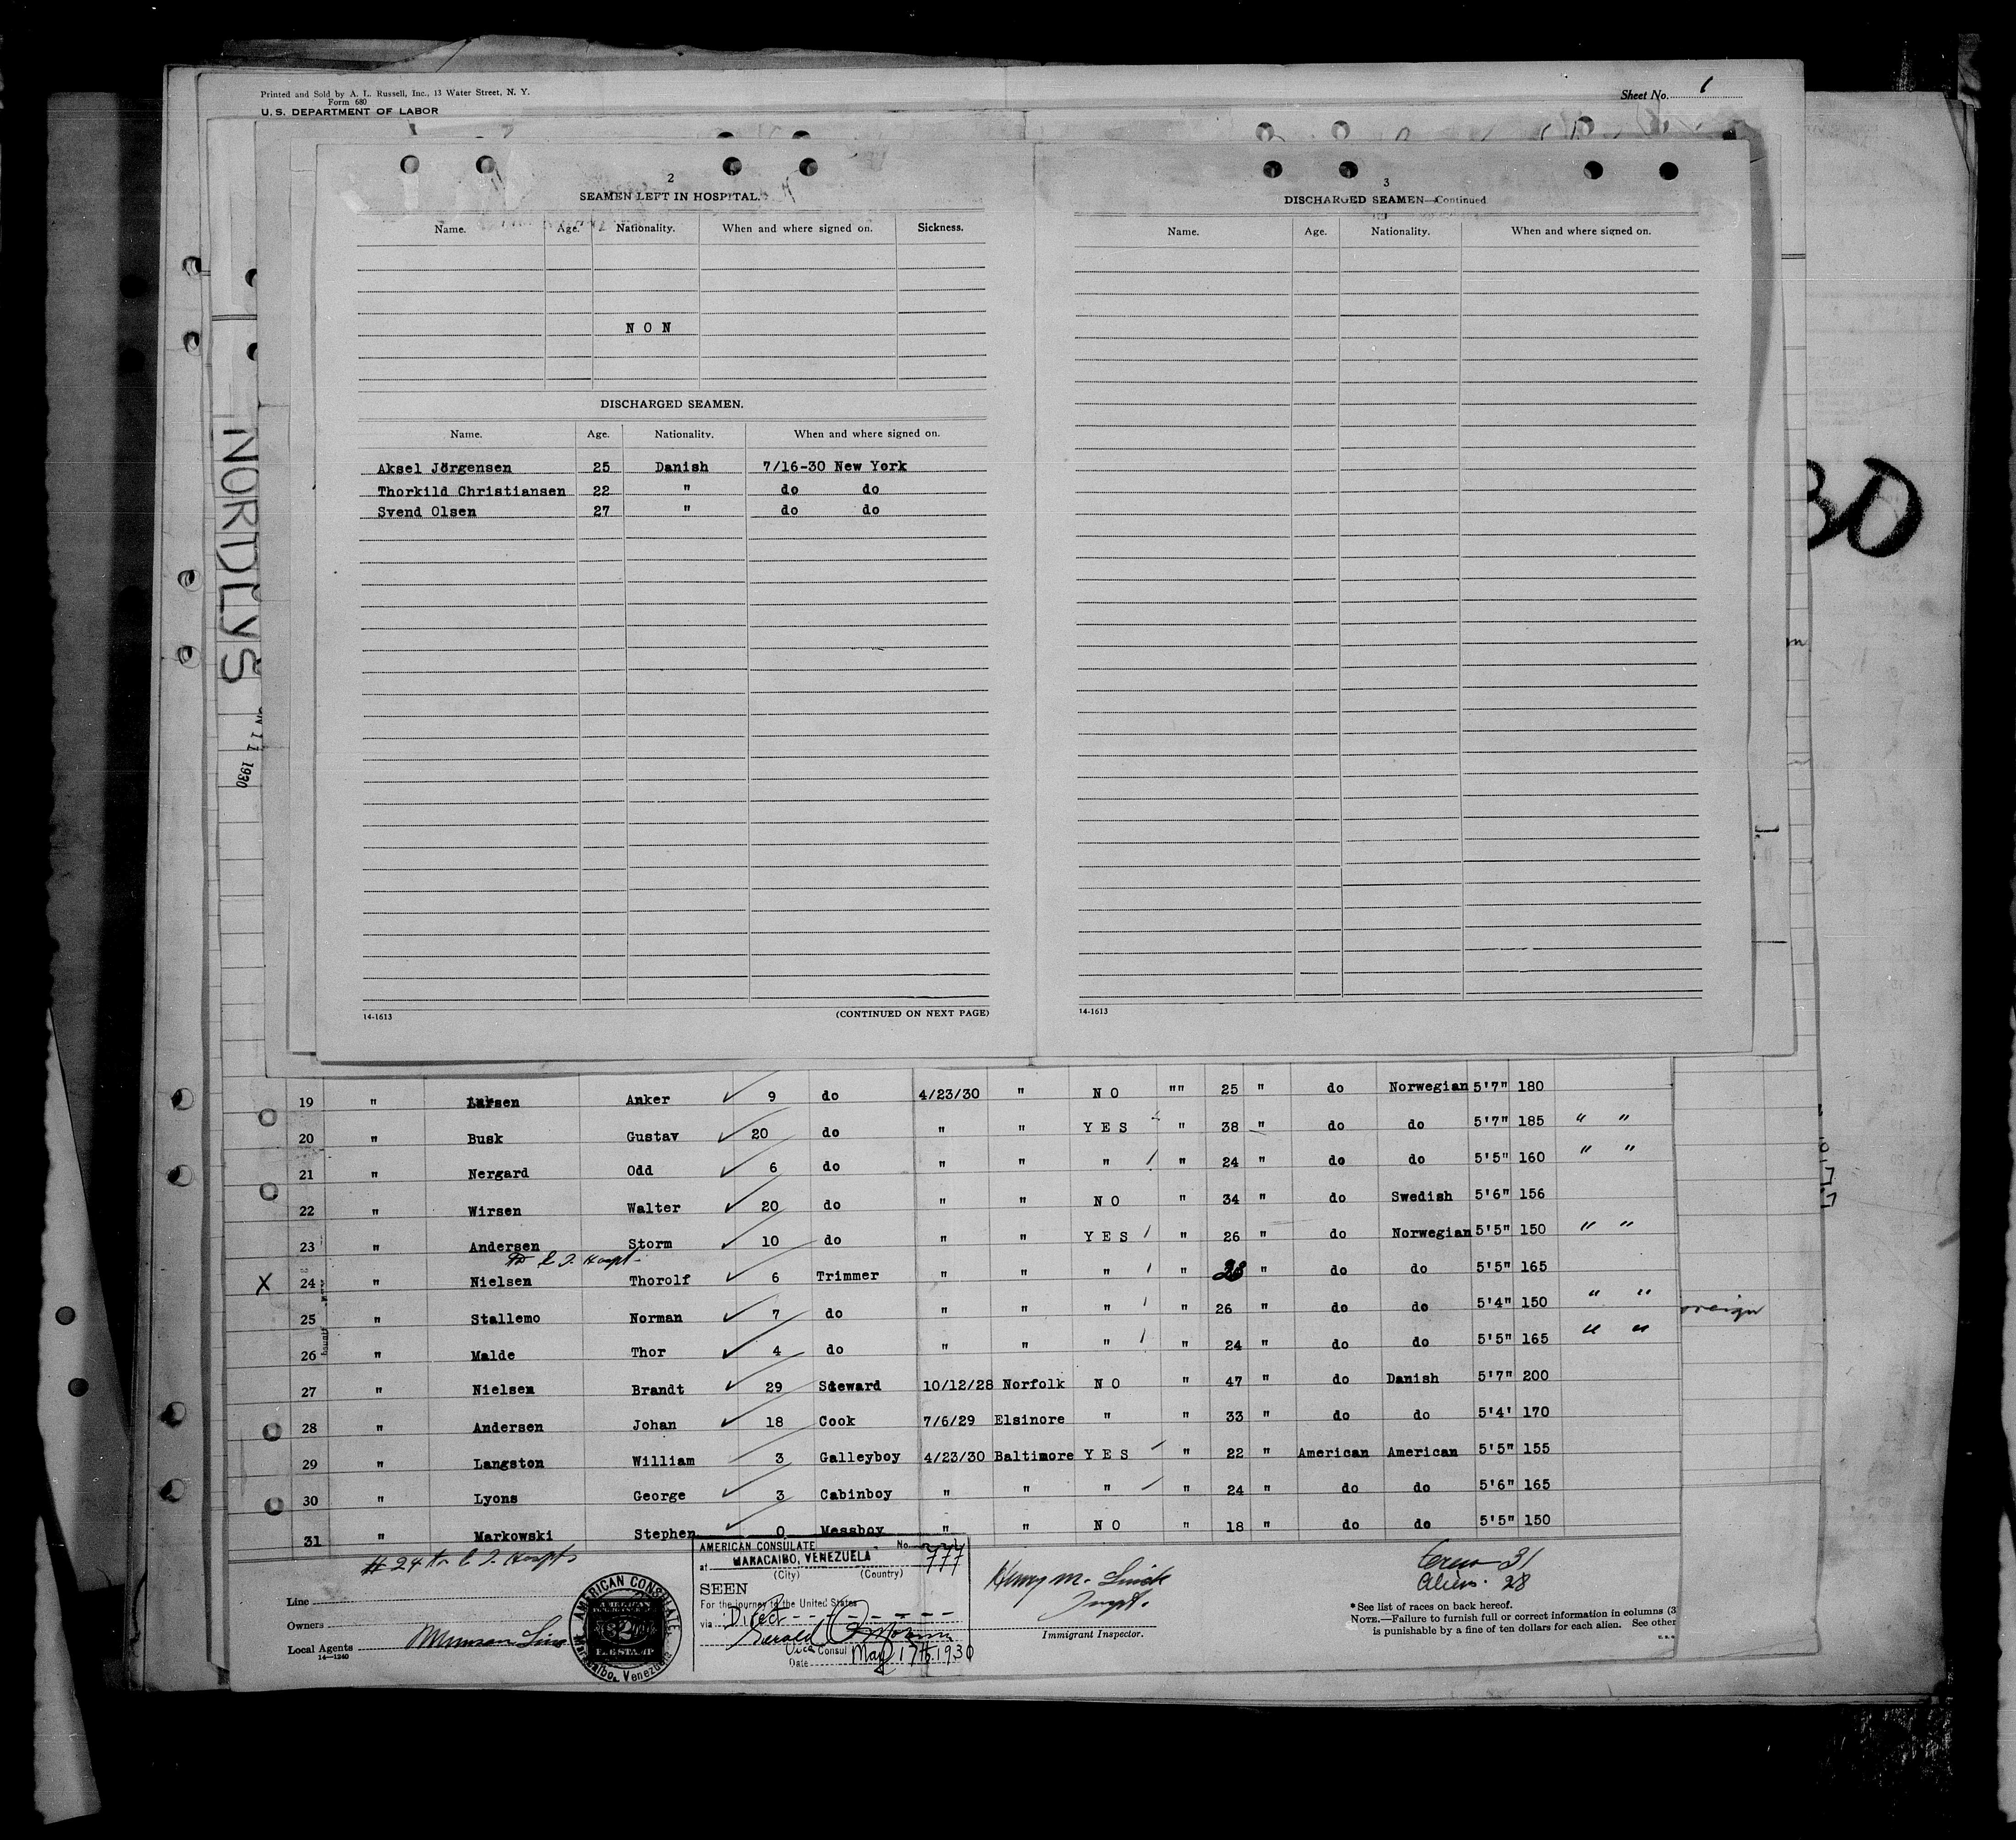 Printed and Sold by A. L. Russell, Inc., 13 Water Street, N. Y.
Form 680
U. S. DEPARTMENT OF LABOR
Sheet No. 1
2
SEAMEN LEFT IN HOSPITAL.
Name. Age. Nationality. When and where signed on. Sickness.
N O N
DISCHARGED SEAMEN.
Name. Age. Nationality. When and where signed on.
Aksel Jörgensen 25 Danish 7/16-30 New York
Thorkild Christiansen 22 " do do
Svend Olsen 27 " do do
14-1613 (CONTINUED ON NEXT PAGE)
3
DISCHARGED SEAMEN—Continued
Name. Age. Nationality. When and where signed on.
14-1613
NORDLYS
11 1930
30
19 " Larsen Anker 9 do 4/23/30 " N O "" 25 " do Norwegian 5'7" 180
20 " Busk Gustav 20 do " " Y E S " 38 " do do 5'7" 185 " "
21 " Nergard Odd 6 do " " " " 24 " do do 5'5" 160 " "
22 " Wirsen Walter 20 do " " N O " 34 " do Swedish 5'6" 156
23 " Andersen Storm 10 do " " Y E S " 26 " do Norwegian 5'5" 150 " "
Hospt
X 24 " Nielsen Thorolf 6 Trimmer " " " " 28 " do do 5'5" 165
25 " Stallemo Norman 7 do " " " " 26 " do do 5'4" 150 " "
oreign
26 " Malde Thor 4 do " " " " 24 " do do 5'5" 165 " "
27 " Nielsen Brandt 29 Steward 10/12/28 Norfolk N O " 47 " do Danish 5'7" 200
28 " Andersen Johan 18 Cook 7/6/29 Elsinore " " 33 " do do 5'4' 170
29 " Langston William 3 Galleyboy 4/23/30 Baltimore Y E S " 22 " American American 5'5" 155
30 " Lyons George 3 Cabinboy " " " " 24 " do do 5'6" 165
31 " Markowski Stephen 0 Messboy " " N O " 18 " do do 5'5" 150
#24 to Hospt
Line
Owners
Local Agents Munson Line
14—1240
AMERICAN CONSULATE
Maracaibo, Venezuela
AMERICAN
$2
FEE STAMP
AMERICAN CONSULATE No. 777
at MARACAIBO, VENEZUELA
(City) (Country)
SEEN
For the journey to the United States
via Direct
Gerald
Vice Consul
Date May 17th. 1930
Henry M.
Inspt.
Immigrant Inspector.
Crew 31
Aliens. 28
*See list of races on back hereof.
NOTE.—Failure to furnish full or correct information in columns (3
is punishable by a fine of ten dollars for each alien. See other